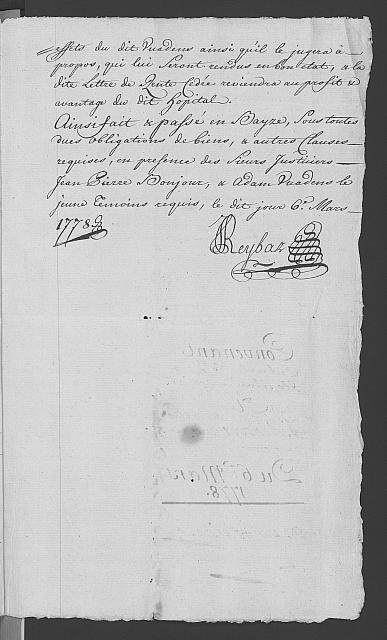 effets du dit Vuadens ainsi qu'il le jugera à
propos, qui lui seront rendus en bon état, & la
dite Lettre de Rente Cédée reviendra au profit &
avantage du dit Hopital.
Ainsi fait & passé en Bayze, Sous toutes
dues obligations de biens, & autres Clauses
requises, en presence des Sieurs Justiciers
Jean Pierre Bonjour, & Adam Vuadens le
jeune Temoins requis, le dit jour 6e. Mars
1778.
Reybaz
Convenant
Du 6e Mars
1778.